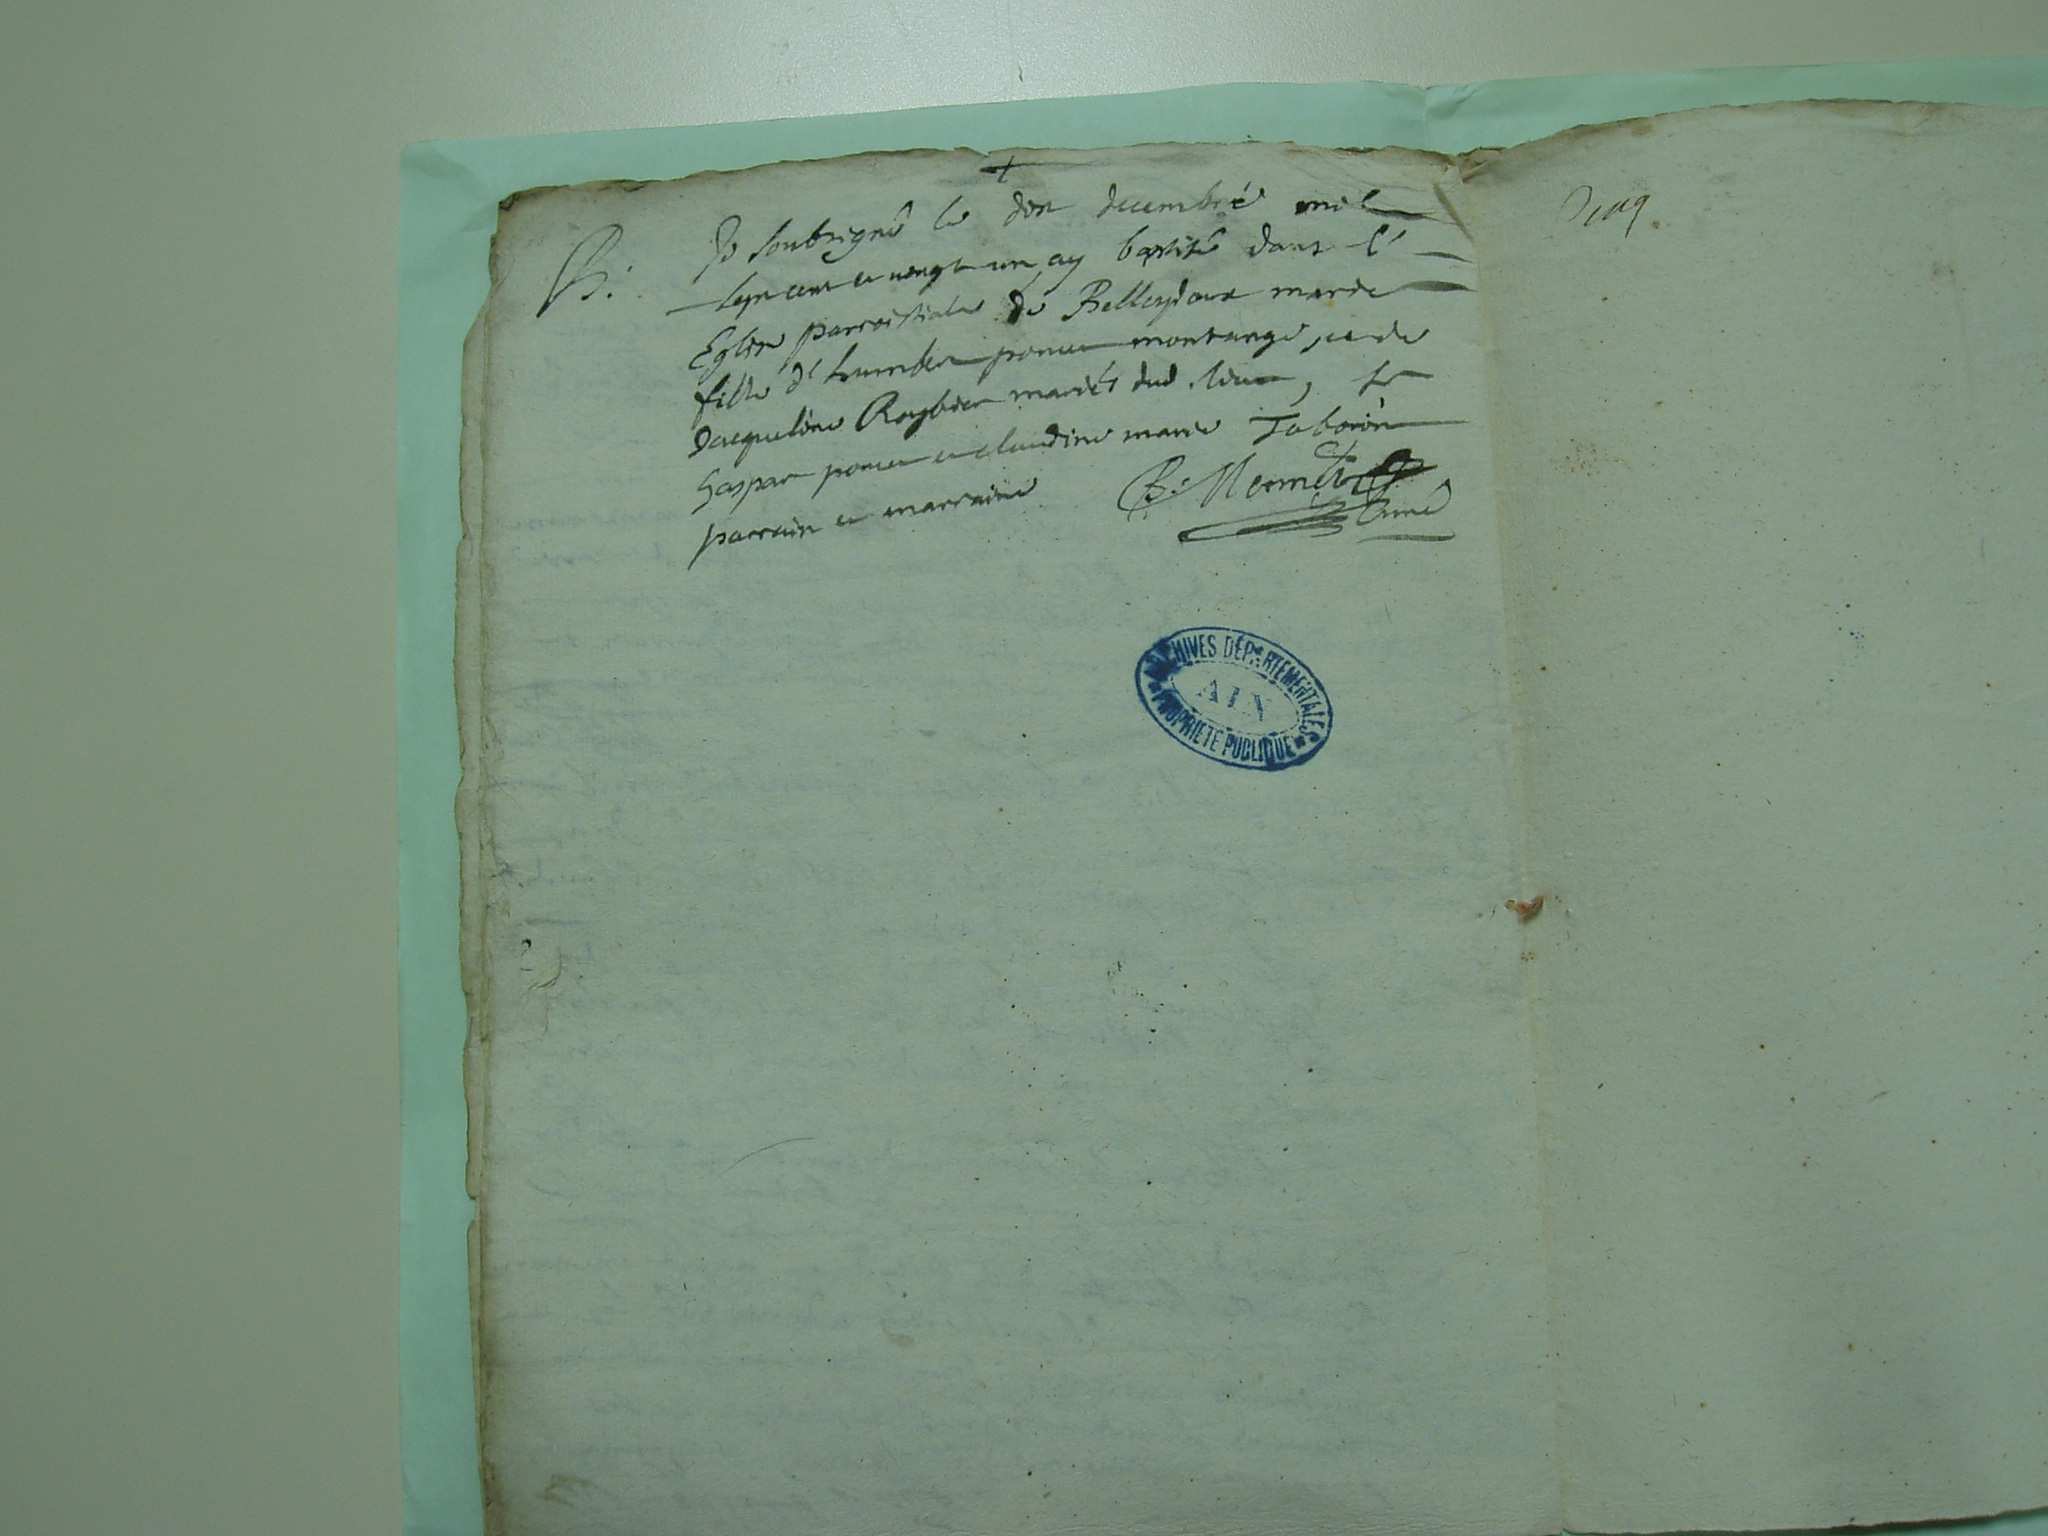 B:
Je soubsigné le dix decembre mil
sept cent et vengt un ay baptisé dans l'
Eglise parroissiale de Belleydoux marie
fille d'humber poncet montange, et de
Jacqueline mariés dud. lieu, Sr
Gaspar poncet et claudine marie Taborin
parrain et marraine
B: Mermet
Curé
ARCHIVES DÉPARTEMENTALES
AIN
PROPRIÉTÉ PUBLIQUE